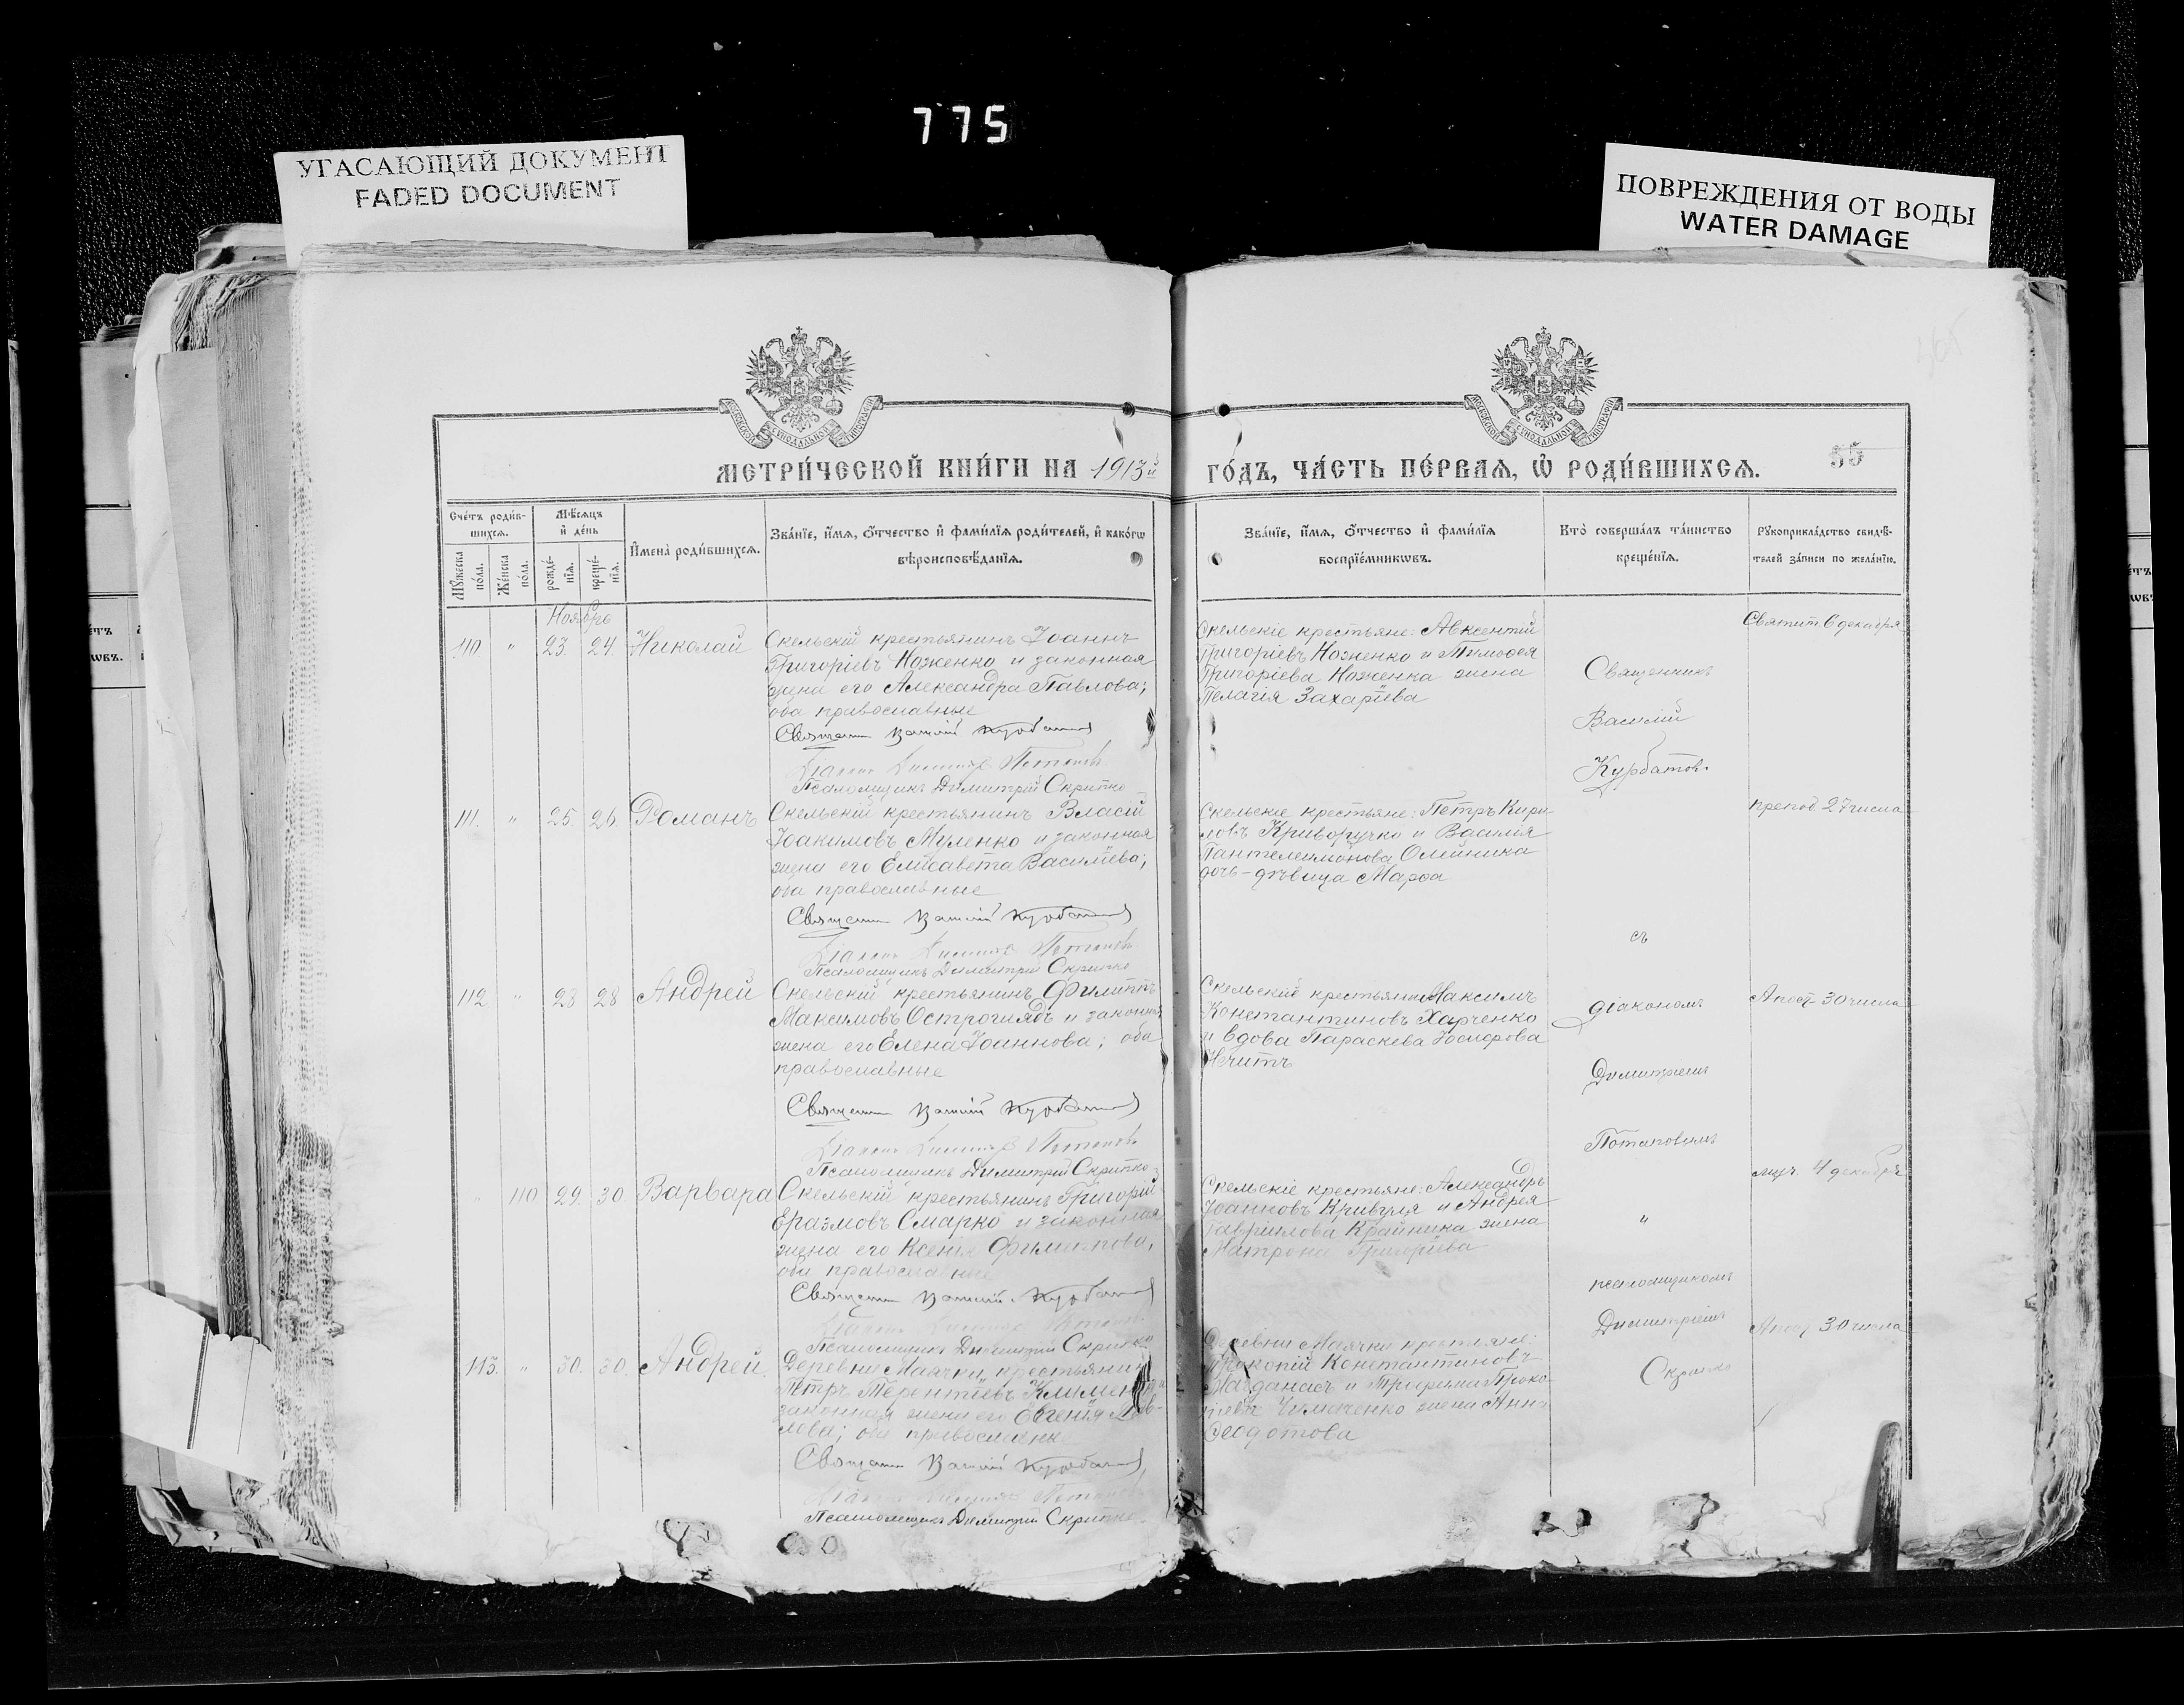 775
УГАСАЮЩИЙ ДОКУМЕНТ
FADED DOCUMENT
ПОВРЕЖДЕНИЯ ОТ ВОДЫ
WATER DAMAGE
МОСКОВСКОЙ СѴНОДАЛЬНОЙ ТИПОГРАФІИ
МОСКОВСКОЙ СѴНОДАЛЬНОЙ ТИПОГРАФІИ
МЕТРИ́ЧЕСКОЙ КНИ́ГИ НА 1913й ГО́ДЪ, ЧА́СТЬ ПЕ́РВАЯ, Ѡ РОДИ́ВШИХСЯ.
55
Сче́тъ роди́в-
шихся.
Мѣ́сяцъ
и де́нь
Му́жеска по́ла.
Же́нска по́ла.
рожде́-
нїя.
креще́-
нїя.
И҆мена̀ роди́вшихся.
Зва́нїе, и҆́мя, ѻ҆́тчество и҆ фами́лїя роди́телей, и҆ како́гѡ
вѣроисповѣ́данїя.
Зва́нїе, и҆́мя, ѻ҆́тчество и҆ фами́лїя
воспрїе́мникѡвъ.
Кто̀ соверша́лъ та́инство
креще́нїя.
Рꙋкоприкла́дство свидѣ́-
телей за́писи по жела́нїю.
Ноябрь
110 " 23. 24 Николай
Скельскій крестьянинъ Іоаннъ
Григоріевъ Ноженко и законная
жена его Александра Павлова;
оба православные
Священн Василій Курбатовъ
Діаконъ Димитрій Потаповъ
Псаломщикъ Димитрій Скрипко
Скельскіе крестьяне: Авксентій
Григоріевъ Ноженко и Тимоѳея
Григоріева Ноженка жена
Пелагія Захаріева
Священникъ
Василій
Курбатовъ
Святит. 6 декабря
111. " 25. 26. Романъ
Скельскій крестьянинъ Власій
Іоакимовъ Муленко и законная
жена его Елисавета Васильева;
оба православные
Священн Василій Курбатовъ
Діаконъ Димитрій Потаповъ
Псаломщикъ Димитрій Скрипко
Скельскіе крестьяне: Петръ Кири-
ловъ Криворучко и Василія
Пантелеимонова Олейника
дочь-дѣвица Марѳа
препод. 27 числа
съ
112 " 23 28 Андрей
Скельскій крестьянинъ Филиппъ
Максимовъ Остроглядъ и законная
жена его Елена Іоаннова; оба
православные
Священн Василій Курбатовъ
Діаконъ Димитрій Потаповъ
Псаломщикъ Димитрій Скрипко
Константиновъ Харченко
и вдова Параскева
діакономъ
Димитріемъ
Потаповымъ
Апост. 30 числа
" 110 29. 30. Варвара
Скельскій крестьянинъ Григорій
Еразмовъ Смарко и законная
жена его Ксенія Филиппова;
оба православные
Священн Василій Курбатовъ
Діаконъ Димитрій Потаповъ
Псаломщикъ Димитрій Скрипко
Скельскіе крестьяне: Александръ
Іоанновъ Кривуля и Андрея
Гавріилова Крайника жена
Матрона Григоріева
"
псаломщикомъ
Димитріемъ
Скрипко
муч. 4 декабря
113. " 30. 30. Андрей.
Деревни Маячки, крестьянинъ
Петръ Терентіевъ
законная жена его Евгенія
оба православные
Священн Василій Курбатовъ
Діаконъ Димитрій Потаповъ
Псаломщикъ Димитрій Скрипко
Деревни Маячки крестьяне:
Прокопій Константиновъ
жена Анна
Ѳеодотова
Апост. 30 числа